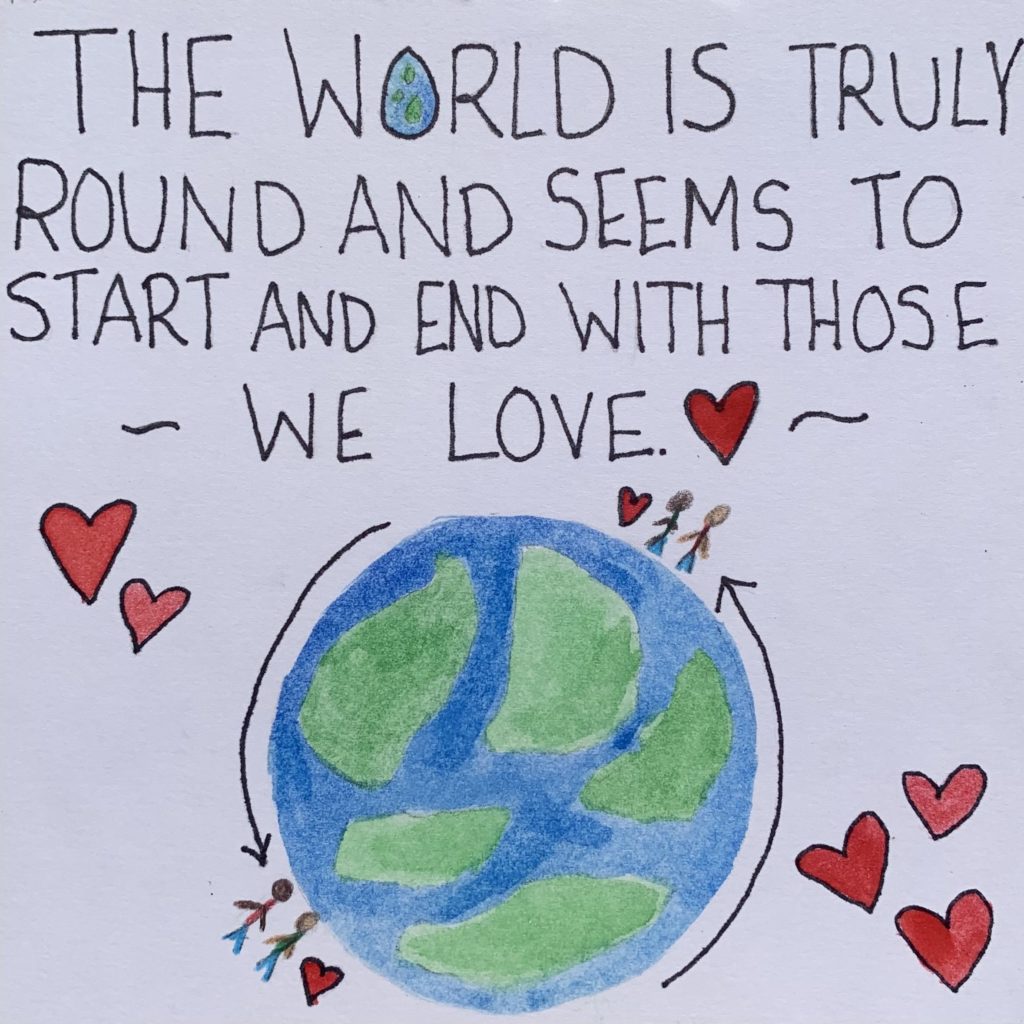 THE WORLD IS TRULY
ROUND AND SEEMS TO
START AND END WITH THOSE
~ WE LOVE. ~